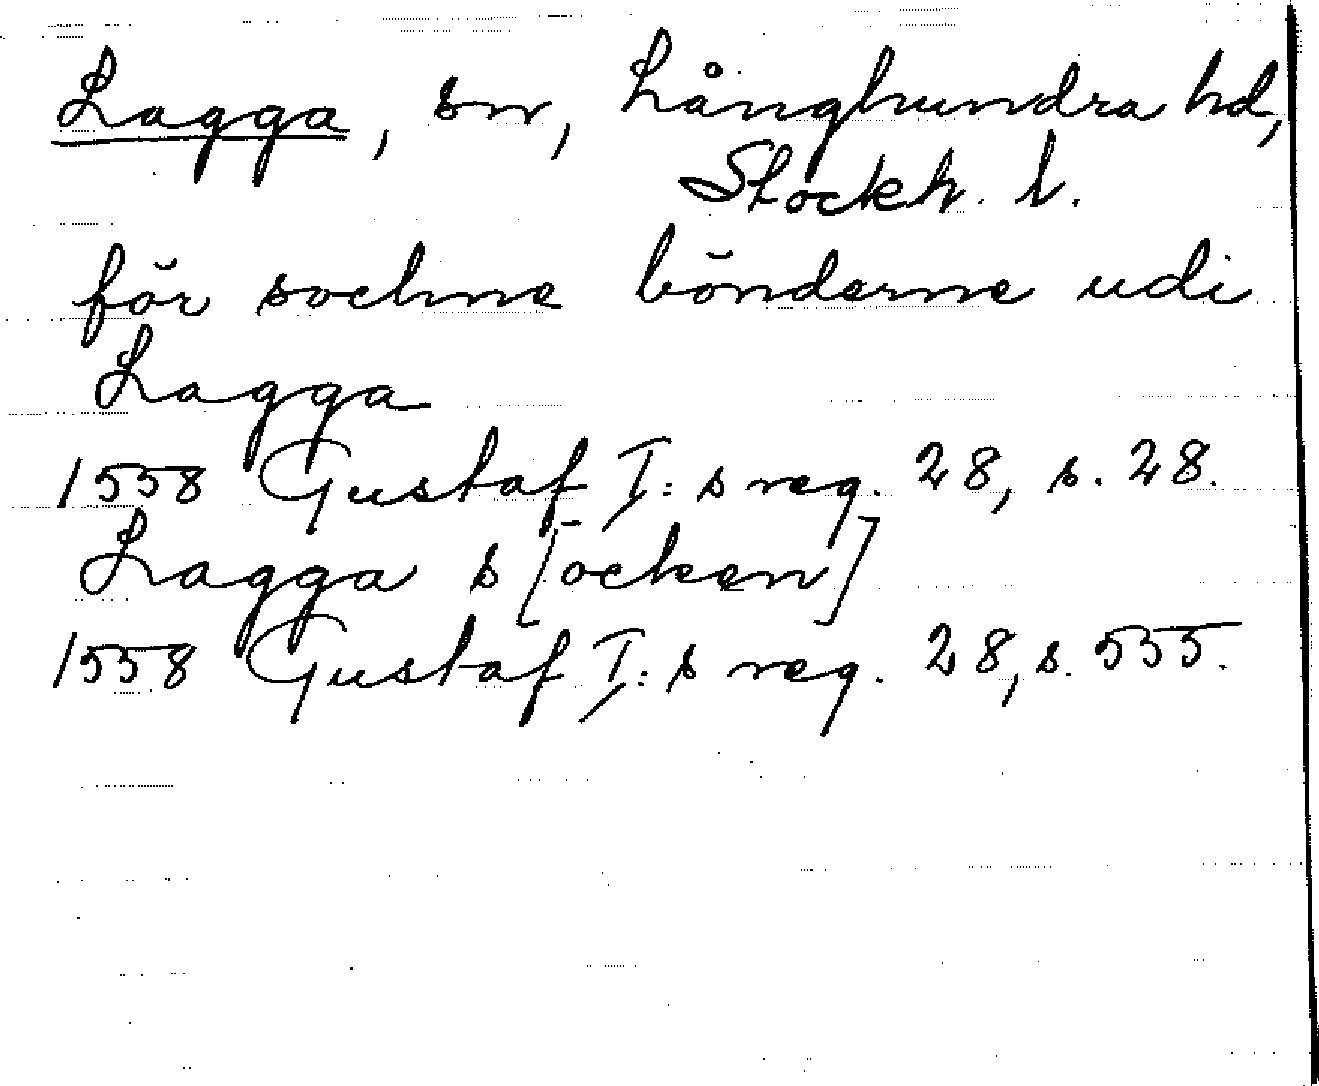 Lagga, sn, Långhundra hd,
Stockh. l.
för sochne bönderne udi
Lagga
1558 Gustaf I:s reg. 28, s. 28.
Lagga s[ocken]
1558 Gustaf I:s reg. 28, s. 555.